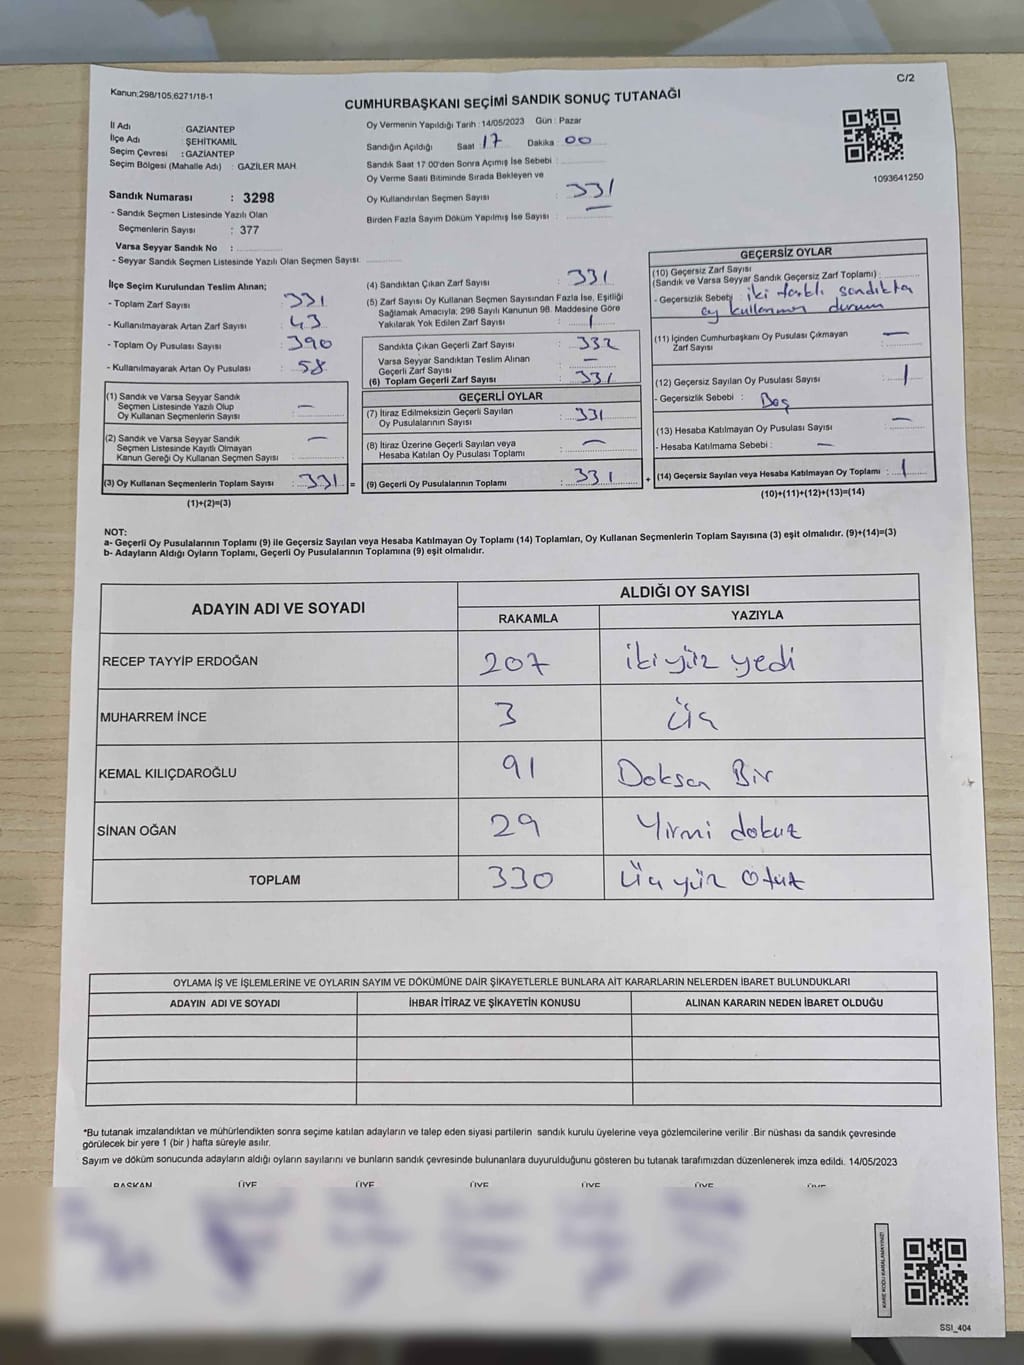 C/2
Kanun:298/105,6271/18-1
CUMHURBAŞKANI SEÇİMİ SANDIK SONUÇ TUTANAĞI
İl Adı : GAZİANTEP
İlçe Adı : ŞEHİTKAMİL
Seçim Çevresi : GAZİANTEP
Seçim Bölgesi (Mahalle Adı) : GAZİLER MAH.
Sandık Numarası : 3298
- Sandık Seçmen Listesinde Yazılı Olan
Seçmenlerin Sayısı : 377
Varsa Seyyar Sandık No :
- Seyyar Sandık Seçmen Listesinde Yazılı Olan Seçmen Sayısı:
Oy Vermenin Yapıldığı Tarih : 14/05/2023 Gün : Pazar
Sandığın Açıldığı Saat : 17 Dakika : 00
Sandık Saat 17:00'den Sonra Açımış İse Sebebi :
Oy Verme Saati Bitiminde Sırada Bekleyen ve
Oy Kullandırılan Seçmen Sayısı : 331
Birden Fazla Sayım Döküm Yapılmış İse Sayısı : —
1093641250
İlçe Seçim Kurulundan Teslim Alınan;
- Toplam Zarf Sayısı : 331
- Kullanılmayarak Artan Zarf Sayısı : 43
- Toplam Oy Pusulası Sayısı : 390
- Kullanılmayarak Artan Oy Pusulası : 58
(1) Sandık ve Varsa Seyyar Sandık
Seçmen Listesinde Yazılı Olup
Oy Kullanan Seçmenlerin Sayısı : —
(2) Sandık ve Varsa Seyyar Sandık
Seçmen Listesinde Kayıtlı Olmayan
Kanun Gereği Oy Kullanan Seçmen Sayısı : —
(3) Oy Kullanan Seçmenlerin Toplam Sayısı : 331 =
(1)+(2)=(3)
(4) Sandıktan Çıkan Zarf Sayısı : 331
(5) Zarf Sayısı Oy Kullanan Seçmen Sayısından Fazla İse, Eşitliği
Sağlamak Amacıyla; 298 Sayılı Kanunun 98. Maddesine Göre
Yakılarak Yok Edilen Zarf Sayısı : 1
Sandıkta Çıkan Geçerli Zarf Sayısı : 332
Varsa Seyyar Sandıktan Teslim Alınan
Geçerli Zarf Sayısı : —
(6) Toplam Geçerli Zarf Sayısı : 331
GEÇERLİ OYLAR
(7) İtiraz Edilmeksizin Geçerli Sayılan
Oy Pusulalarının Sayısı : 331
(8) İtiraz Üzerine Geçerli Sayılan veya
Hesaba Katılan Oy Pusulası Toplamı : —
(9) Geçerli Oy Pusulalarının Toplamı : 331 +
GEÇERSİZ OYLAR
(10) Geçersiz Zarf Sayısı
(Sandık ve Varsa Seyyar Sandık Geçersiz Zarf Toplamı) :
- Geçersizlik Sebebi : iki farklı sandıkta
oy kullanma durum
(11) İçinden Cumhurbaşkanı Oy Pusulası Çıkmayan
Zarf Sayısı : —
(12) Geçersiz Sayılan Oy Pusulası Sayısı : 1
- Geçersizlik Sebebi : Boş
(13) Hesaba Katılmayan Oy Pusulası Sayısı : —
- Hesaba Katılmama Sebebi : —
(14) Geçersiz Sayılan veya Hesaba Katılmayan Oy Toplamı : 1
(10)+(11)+(12)+(13)=(14)
NOT:
a- Geçerli Oy Pusulasının Toplamı (9) ile Geçersiz Sayılan veya Hesaba Katılmayan Oy Toplamı (14) Toplamları, Oy Kullanan Seçmenlerin Toplam Sayısına (3) eşit olmalıdır. (9)+(14)=(3)
b- Adayların Aldığı Oyların Toplamı, Geçerli Oy Pusulalarının Toplamına (9) eşit olmalıdır.
ADAYIN ADI VE SOYADI
ALDIĞI OY SAYISI
RAKAMLA YAZIYLA
RECEP TAYYİP ERDOĞAN 207 iki yüz yedi
MUHARREM İNCE 3 üç
KEMAL KILIÇDAROĞLU 91 Doksan Bir
SİNAN OĞAN 29 Yirmi dokuz
TOPLAM 330 Üç yüz Otuz
OYLAMA İŞ VE İŞLEMLERİNE VE OYLARIN SAYIM VE DÖKÜMÜNE DAİR ŞİKAYETLERLE BUNLARA AİT KARARLARIN NELERDEN İBARET BULUNDUKLARI
ADAYIN ADI VE SOYADI İHBAR İTİRAZ VE ŞİKAYETİN KONUSU ALINAN KARARIN NEDEN İBARET OLDUĞU
*Bu tutanak imzalandıktan ve mühürlendikten sonra seçime katılan adayların ve talep eden siyasi partilerin sandık kurulu üyelerine veya gözlemcilerine verilir .Bir nüshası da sandık çevresinde
görülecek bir yere 1 (bir ) hafta süreyle asılır.
Sayım ve döküm sonucunda adayların aldığı oyların sayılarını ve bunların sandık çevresinde bulunanlara duyurulduğunu gösteren bu tutanak tarafımızdan düzenlenerek imza edildi. 14/05/2023
BAŞKAN ÜYE ÜYE ÜYE ÜYE ÜYE ÜYE
KARE KODU KARALAMAYINIZ!
SSI_404